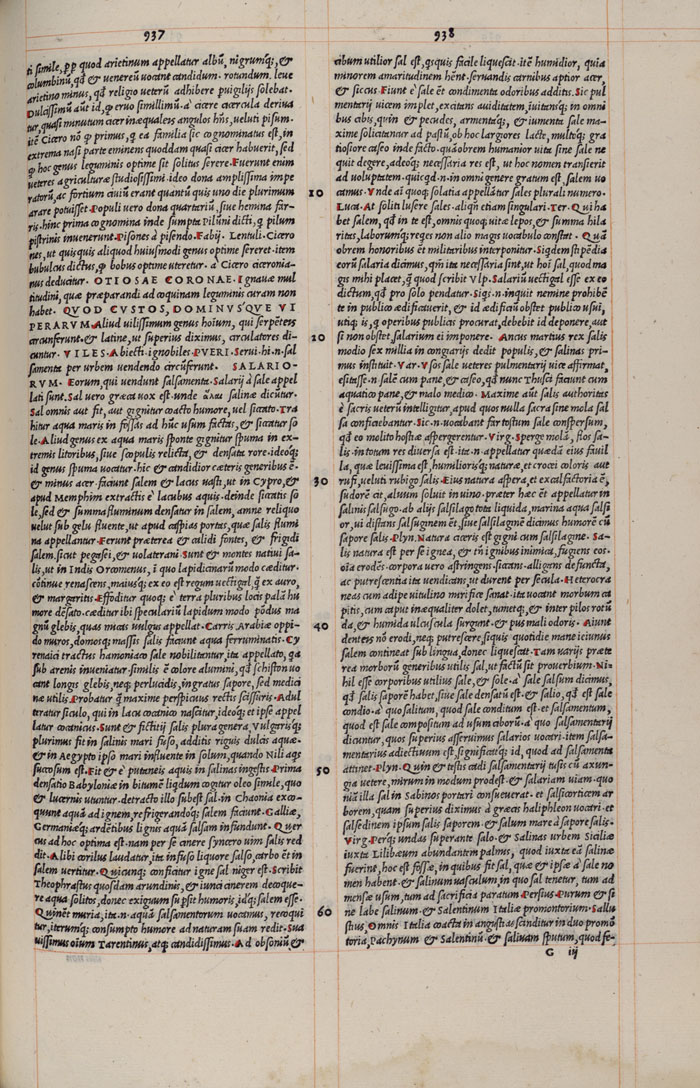 937
ti simile, ꝓꝑ quod arietinum appellatur albũ, nigrumq́;, &
columbinũ, qđ & venereũ uocant candidum. rotundum. leue
arietino minus, qđ religio ueterũ adhibere puigilijs solebat.
Dulcissimũ aũt id, ꝙ eruo simillimũ. a cicere cicercula deriua
tur, quasi minutum cicer inæquales angulos hñs, ueluti pisum.
itē Cicero nō ꝙ primus, q ea familia sic cognominatus est, in
extrema nasi parte eminens quoddam quasi cicer habuerit, sed
ꝙ hoc genus leguminis optime sit solitus serere. Fuerunt enim
ueteres agriculturæ studiosissimi. ideo dona amplissima impe
ratorũ, ac fortium ciuiũ erant quantũ quis uno die plurimum
arare potuisset. Populi uero dona quartariũ, siue hemina far-
ris. hinc prima cognomina inde sumpta Pilũni dicti, q pilum
pistrinis inuenerunt. Pisones a pisendo. Fabij. Lentuli. Cicero
nes, ut quisquis aliquod huiusmodi genus optime sereret. item
bubulcus dictus, ꝙ bobus optime uteretur. a Cicero ciceronia-
nus deducitur. OTIOSAE CORONAE. Ignauæ mul
titudini, quæ præparandi ad coquinam leguminis curam non
habet. QVOD CVSTOS, DOMINVS'QVE VI
PERARVM. Aliud uilissimum genus hoium, qui serpētes
circunferunt. & latine, ut superius diximus, circulatores di-
cuntur. VILES. Abiecti. ignobiles. PVERI. Serui. hi. n. sal
samenta per urbem uendendo circũferunt. SALARIO-
RVM. Eorum, qui uendunt salsamenta. Salarij a sale appel
lati sunt. Sal uero græca uox est. unde salinæ dicũtur.
Sal omnis aut fit, aut gignitur coacto humore, uel siccato. Tra
hitur aqua maris in fossas ad hũc usum factas, & siccatur so
le. Aliud genus ex aqua maris sponte gignitur spuma in ex-
tremis litoribus, siue scopulis relicta, & densata rore. ideoq́;
id genus spuma uocatur. hic & candidior cæteris generibus ē.
& minus acer. faciunt salem & lacus uasti, ut in Cypro, &
apud Memphim extractis ē lacubus aquis. deinde siccatis so
le, sed & summa fluminum densatur in salem, amne reliquo
uelut sub gelu fluente, ut apud caspias portas, quæ salis flumi
na appellantur. Ferunt præterea & calidi fontes, & frigidi
salem. sicut pegasei, & uolaterani. Sunt & montes natiui sa-
lis, ut in Indis Oromenus, ĩ quo lapidicinarũ modo cæditur.
cōtinue renascens, maiusq́; ex eo est regum uectigal, q̃ ex auro,
& margaritis. Effoditur quoq́; ē terra pluribus locis palã hu
more dēsato. cæditur ibi speculariũ lapidum modo pōdus ma
gnũ glebis, quas micas uulgus appellat. Carris Arabiæ oppi-
do muros, domosq́; massis salis faciunt aqua ferruminatis. Cy
renaici tractus hamoniaco sale nobilitantur, ita appellato, qa
sub arenis inueniatur. similis ē colore alumini, qđ schiston uo
cant longis glebis, neq́; perlucidis, ingratus sapore, sed medici
næ utilis. Probatur q̃ maxime perspicuus rectis scissuris. Adul
teratur siculo, qui in lacu cocanico nascitur, ideoq́; et ipse appel
latur cocanicus. Sunt & fictitij salis plura genera. Vulgarisq́;
plurimus fit in salinis mari fuso, additis riguis dulcis aquæ.
& in Aegypto ipso mari influente in solum, quando Nili aqs
succosum est. Fit & ē puteneis aquis in salinas ingestis. Prima
densatio Babyloniæ in bitumē liqdum cogitur oleo simile, quo
& lucernis utuntur. detracto illo subest sal. in Chaonia exco-
quunt aquã ad ignem, refrigerandoq́; salem faciunt. Galliæ,
Germaniæq́; ardētibus lignis aquã salsam infundunt. Quer
cus ad hoc optima est. nam per se cinere syncero uim salis red
dit. Alibi corilus laudatur, ita infuso liquore salso, carbo ēt in
salem uertitur. Quicunq́; conficitur igne sal niger est. Scribit
Theophrastus quosdam arundinis, & iunci cinerem decoque-
re aqua solitos, donec exiguum supsit humoris, idq́; salem esse.
Quinēt muria, ita. n. aquã salsamentorum uocamus, recoqui
tur, iterumq́; consumpto humore ad naturam suam redit. Sua
uissimus oĩum Tarentinus, atq́; candidissimus. Ad obsoniũ &
10
20
30
40
50
60
938
cibum utilior sal est, qsquis facile liquescit. itē humidior, quia
minorem amaritudinem hēnt. seruandis carnibus aptior acer,
& siccus. Fiunt ē sale ēt condimenta odoribus additis. Sic pul
mentarij uicem implet, excitans auiditatem, ĩuitansq́; in omni
bus cibis, quin & pecudes, armentaq́;, & iumenta sale ma-
xime solicitantur ad pastũ, ob hoc largiores lacte, multoq́; gra
tiosiore caseo inde facto. quãobrem humanior uita sine sale ne
quit degere, adeoq́; necessaria res est, ut hoc nomen transierit
ad uoluptatem. quicqđ. n. in omni genere gratum est, salem uo
camus. Vnde aĩ quoq́; solatia appellãtur sales plurali numero.
Luca. At solit lusere sales. aliqñ etiam singulari. Ter. Qui ha
bet salem, qđ in te est, omnis quoq́; uitæ lepos, & summa hila
ritas, laborumq́; reqes non alio magis uocabulo constat. Quã
obrem honoribus ēt militaribus interponitur. Siqdem stipēdia
eorũ salaria dicimus, qm̃ ita necessaria sint, ut hoĩ sal, quod ma
gis mihi placet, q̃ quod scribit Vlp. Salariũ uectigal esse ex eo
dictum, qđ pro solo pendatur. Siqs. n. inquit nemine prohibē
te in publico ædificauerit, & id ædificiũ obstet publico usui,
utiq́; is, q operibus publicis procurat, debebit id deponere, aut
si non obstet, salarium ei imponere. Ancus martius rex salis
modio sex millia in congiarijs dedit populis, & salinas pri-
mus instituit. Var. Vsos sale ueteres pulmentarij uice affirmat,
esitasse. n. salē cum pane, & caseo, qđ nunc Thusci faciunt cum
aquatico pane, & malo medico. Maxime aũt salis authoritas
ē sacris ueterũ intelligitur, apud quos nulla sacra sine mola sal
sa conficiebantur. Sic. n. uocabant far tostum sale conspersum,
qđ eo molito hostiæ aspergerentur. Virg. Sperge molã, flos sa-
lis. in totum res diuersa est. ita. n. appellatur quædã eius fauil
la, quæ leuissima est, humiliorisq́; naturæ, et crocei coloris aut
rufi, ueluti rubigo salis. Eius natura aspera, et excalfactoria ē,
sudorē cit, aluum soluit in uino. præter hæc ēt appellatur in
salinis salsugo. ab alijs salsilago tota liquida, marina aqua salsi
or, ui distans salsuginem ēt, siue salsilaginē dicimus humorē cũ
sapore salis. Plyn. Natura cæteris est gigni cum salsilagine. Sa-
lis natura est per se ignea, & tñ ignibus inimica, fugiens eos.
oĩa erodēs. corpora uero astringens. siccans. alligans defuncta,
ac putrescentia ita uendicans, ut durent per secula. Heterocra
neas cum adipe uitulino mirifice sanat. ita uocant morbum ca
pitis, cum caput inæqualiter dolet, tumetq́;, & inter pilos rotũ
da, & humida ulcuscula surgunt. & pus mali odoris. Aiunt
dentes nō erodi, neq́; putrescere, siquis quotidie mane ieiunus
salem contineat sub lingua, donec liquescat. Tam uarijs præte
rea morborũ generibus utilis sal, ut factũ sit prouerbium. Ni-
hil esse corporibus utilius sale, & sole. a sale salsum dicimus,
qđ salis saporē habet, siue sale densatũ est. & salio, qđ est sale
condio. a quo salitum, quod sale conditum est. et salsamentum,
quod est sale compositum ad usum ciborũ. a quo salsamentarij
dicuntur, quos superius asseruimus salarios uocari. item salsa-
mentarius adiectiuum est, significatq́; id, quod ad salsamenta
attinet. Plyn. Quin & testis cadi salsamentarij tusis cũ axun-
gia uetere, mirum in modum prodest. & salariam uiam. quo
niã illa sal in Sabinos portari consueuerat. et salsicorticem ar
borem, quam superius diximus a græcis haliphleon uocari. et
salsedinem ipsum salis saporem. & salum mare a sapore salis.
Virg. Perq́; undas superante salo. & Salinas urbem Siciliæ
iuxta Lilibæum abundantem palmus, quod iuxta eã salinæ
fuerint, hoc est fossæ, in quibus fit sal, quæ & ipsæ a sale no
men habent. & salinum uasculum, in quo sal tenetur, tum ad
mensæ usum, tum ad sacrificia paratum. Persius. Purum & si
ne labe salinum. & Salentinum Italiæ promontorium. Salus
stius, Omnis Italia coacta in angustias scinditur in duo promō
toria, Pachynum & Salentinũ. & saliuam sputum, quod fe-
G iij